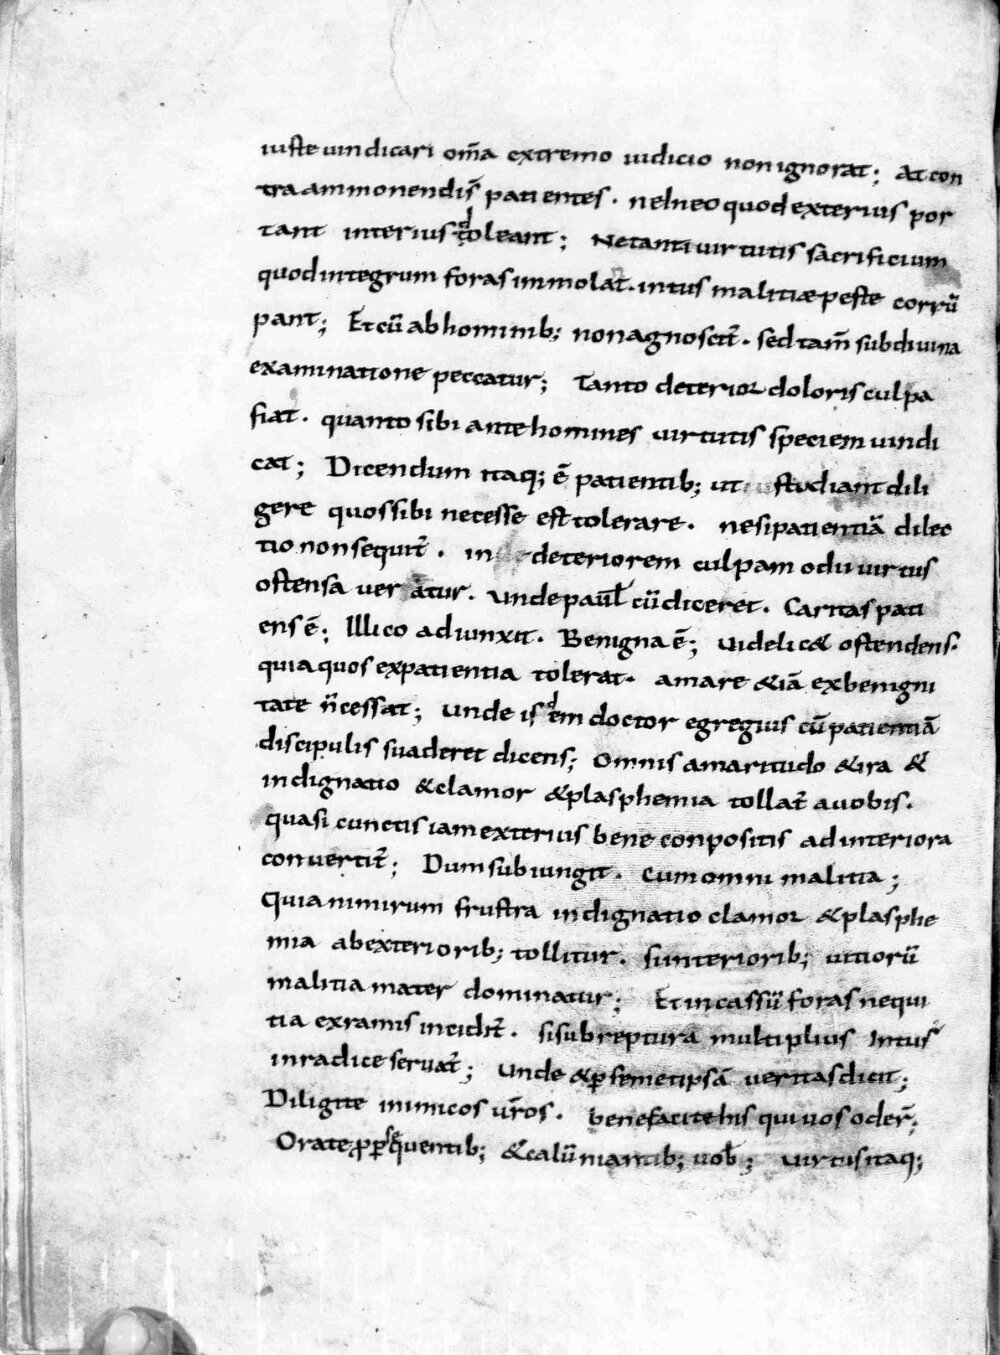 iuste uindicari om̄a extremo iudicio non ignorat; At con
tra ammonendis̄ patientes · ne in eo quod exterius por
tant interius doleant; Ne tanti uirtutis sacrificium
quod integrum foras immolant · intus malitiæ peste corrū
pant; Et cū ab hominib; non agnoscit̄ · sed tam̄ sub diuina
examinatione peccatur; Tanto deterior doloris culpa
fiat · quanto sibi ante homines uirtutis speciem uindi
cat; Dicendum itaq; ē patientib; ut studiant dili
gere quos sibi necesse est tolerare · ne si patientiā dilec
tio non sequit̄ · in deteriorem culpam odii uirtus
ostensa ver atur · Unde paul̄ cū diceret · Caritas pati
ens ē; Illico adiunxit · Benigna ē; Uidelic& ostendens ·
quia quos ex patientia tolerat · amare &iā ex benigni
tate n̄ cessat; Unde isdem doctor egregius cū patientiā
discipulis suaderet dicens; Omnis amaritudo & ira &
indignatio & clamor & plasphemia tollat̄ a uobis ·
quasi cunctis iam exterius bene conpositis ad interiora
conuertit̄; Dum subiungit · Cum omni malitia;
Quia nimirum frustra indignatio clamor & plasphe
mia ab exteriorib; tollitur · si in teriorib; uitiorū
malitia mater dominatur; Et in cassū foras nequi
tia ex ramis incidit̄ · si subreptura multiplius intus
in radice seruat̄; Unde & p̱ semetipsā ueritas dicit;
Diligite inimicos ūr̄os · benefacite his qui uos oder̄;
Orate ꝓ p̱sequentib; & calūniantib; uob̄; Uirtus itaq;